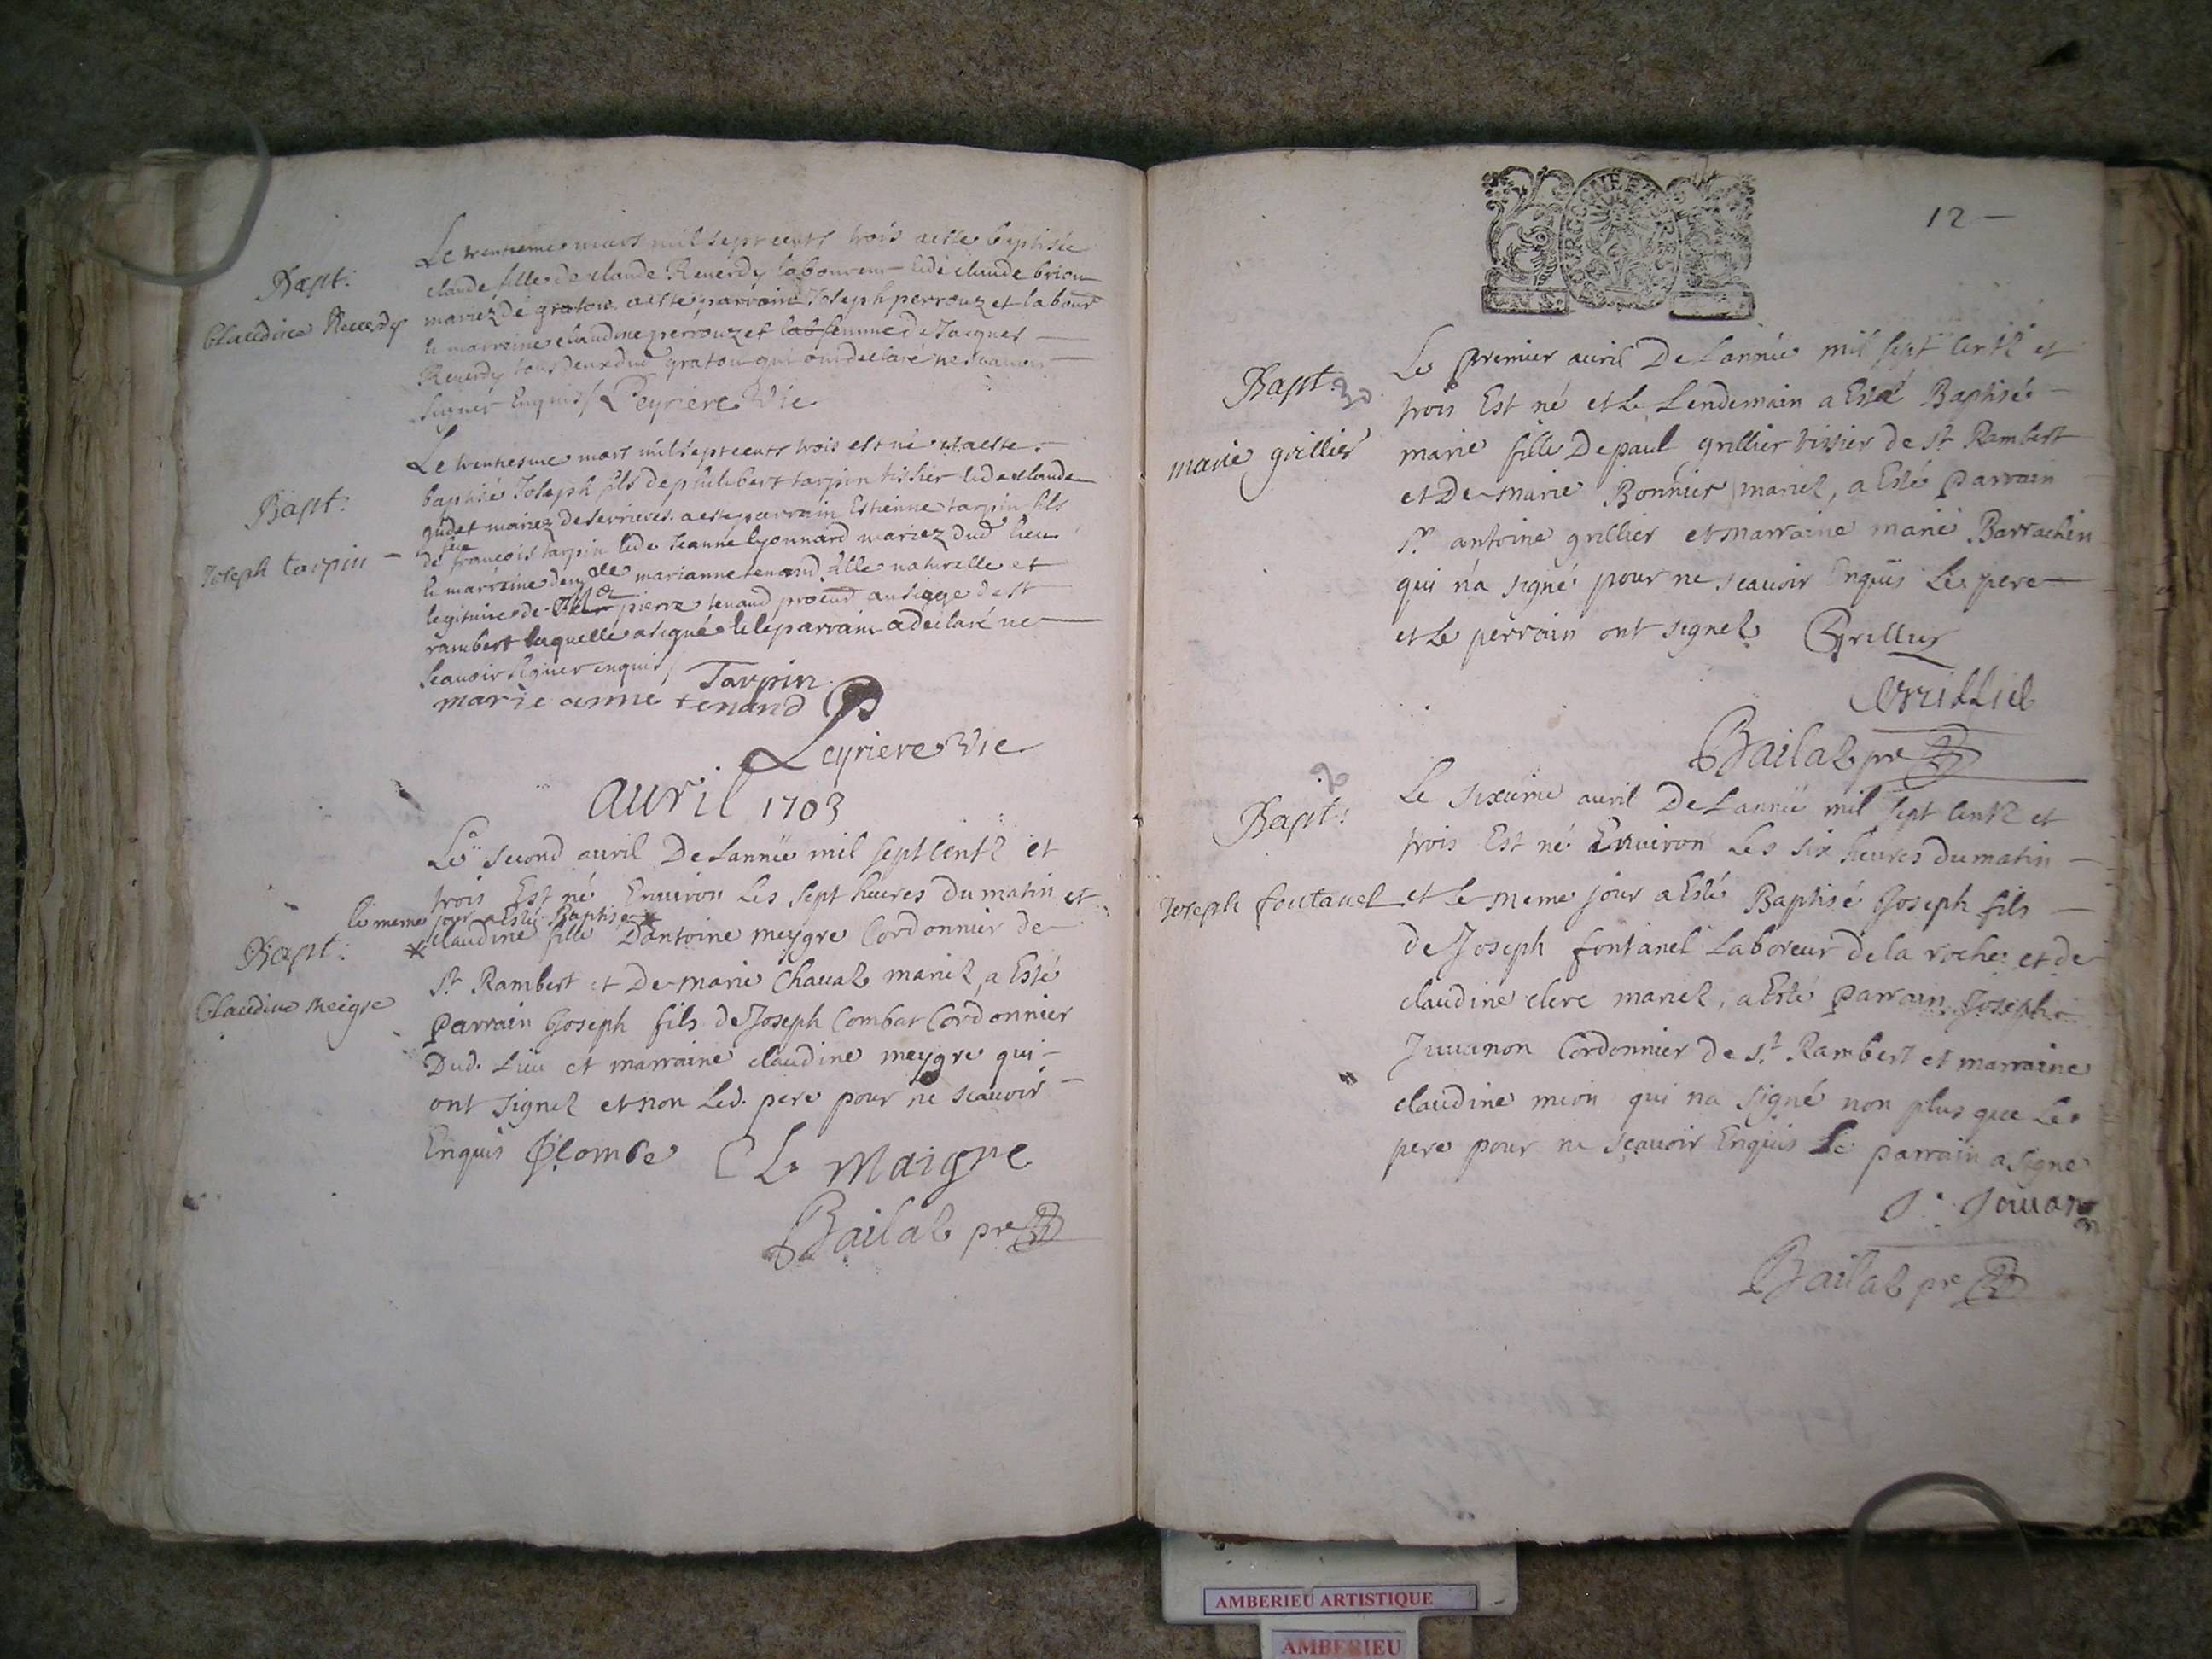 Bapt:
Claudine Reverdy
Le trentieme mars mil sept cents trois a esté baptisée
claude fille de claude Reverdy laboureur & de claude brion
mariez de gratou a esté parrain Joseph perrouzet labour
& marraine claudine perrouzet femme de Jacques
Reverdy tous deux dud gratou qui ont declaré ne scavoir
signer Enquis / Leyriere Vic
Bapt:
Joseph tarpin
Le trentiesme mars mil sept cents trois est né et a esté
baptisé Joseph fils de philibert tarpin tissier & de claude
mariez de serrieres a esté parrain Estienne tarpin fils
de francois tarpin & de Jeanne lyonnard mariez dud lieu
& marraine dem lle marianne tenand fille naturelle et
legitime de pierre tenand procur au siege de st
rambert laquelle a signé & le parrain a declaré ne
scavoir signer enquis / Tarpin
marie anne tenand
Leyriere Vic
auvril 1703
Bapt:
Claudine Meigre
Le second avril De Lannée mil sept centz et
trois Est né Environ Les sept heures du matin et
le meme jour a Esté Baptisé *
* claudine fille Dantoine meygre Cordonnier de
st Rambert et De marie Chavaz mariez, a Esté
parrain Joseph fils de Joseph Combat Cordonnier
Dud. Lieu et marraine claudine meygre qui
ont signez et non Led. pere pour ne scavoir
Enquis Combe C La Maigre
Bailaz pre
12
Bapt:
marie grillier
Le premier avril De Lannée mil sept centz et
trois Est né et Le Lendemain a Esté Baptisé
marie fille De paul grillier tissier de st Rambert
et De marie Bonnier mariez, a Esté parrain
sr antoine grillier et marraine marie Barrachin
qui n'a signé pour ne scavoir Enquis Le pere
et Le perrain ont signez Grillier
Grilliel
Bailaz pre
Bapt:
Joseph fontanel
Le sixieme avril De Lannée mil sept centz et
trois Est né Environ Les six heures du matin
et Le meme jour a Esté Baptisé Joseph fils
de Joseph fontanel Laboreur de la roche et de
claudine clerc mariez, a Esté parrain Joseph
Juvanon Cordonnier de st Rambert et marraine
claudine mion qui na signé non plus que Le
pere pour ne sçavoir Enquis Le parrain a signé
J. Jouvanon
Bailaz pre
AMBERIEU ARTISTIQUE
AMBERIEU